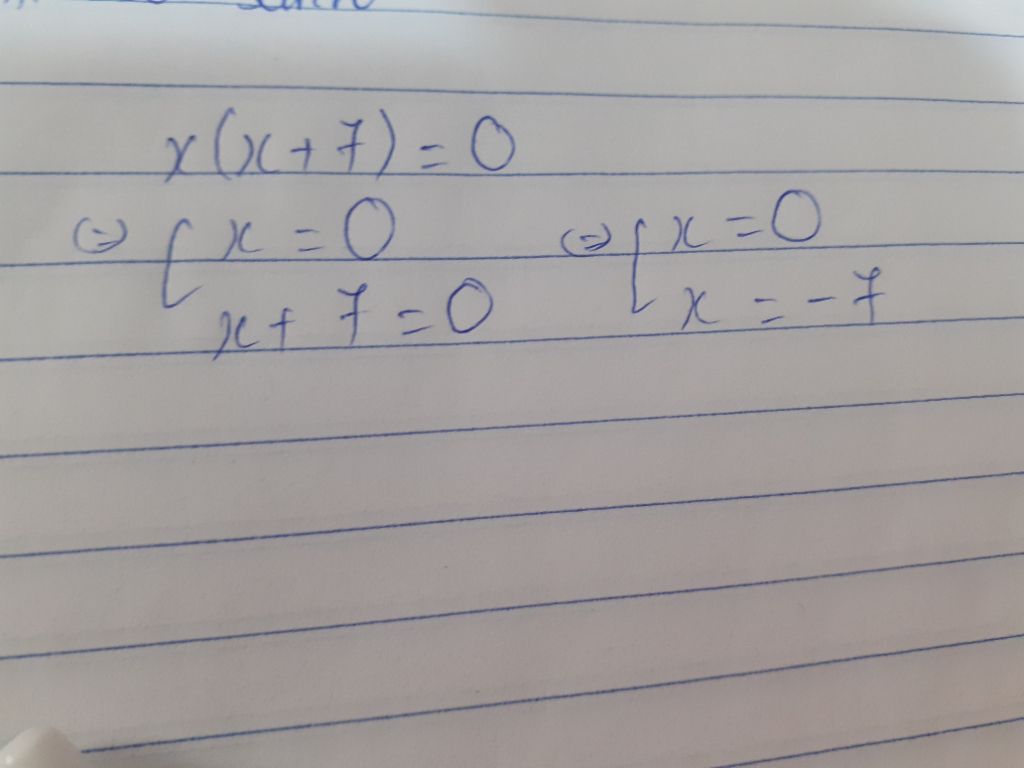 x(x+7)=0
(=) [ x = 0 (=) [ x = 0
x + 7 = 0 x = -7